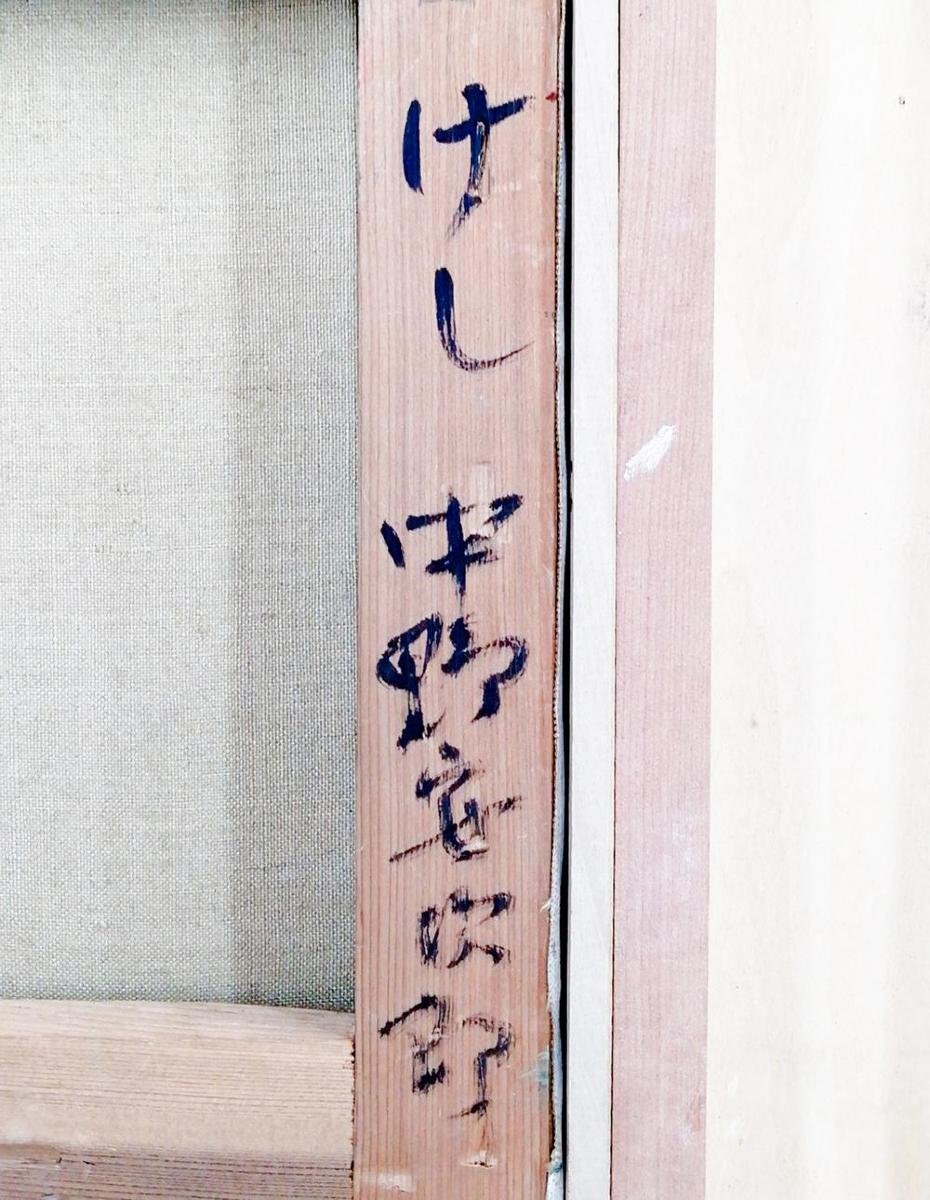 けし 中野安次郎